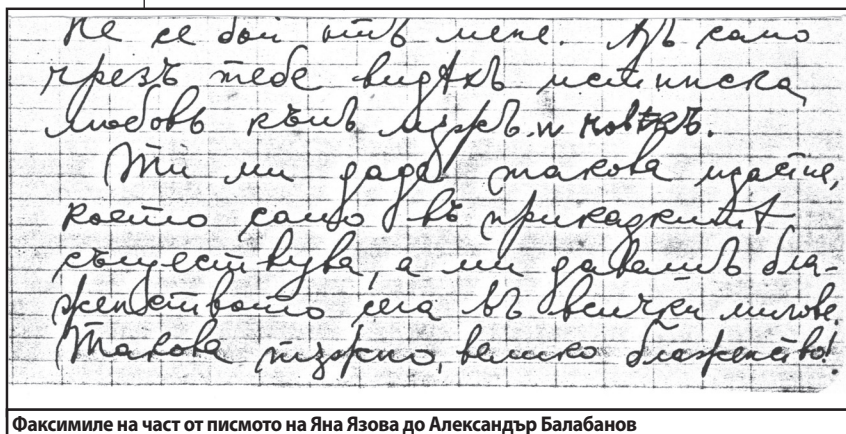 Не се бой отъ мене. Азъ само
чрезъ тебе видѣхъ истинска
любовь къмъ мѫжъ и човѣкъ.
Ти ми даде такова щастие,
което само въ приказкитѣ
съществува, а ми давашъ бла-
женството сега въ всички мигове.
Такова тѫжно, велико блаженство!
Факсимиле на част от писмото на Яна Язова до Александър Балабанов